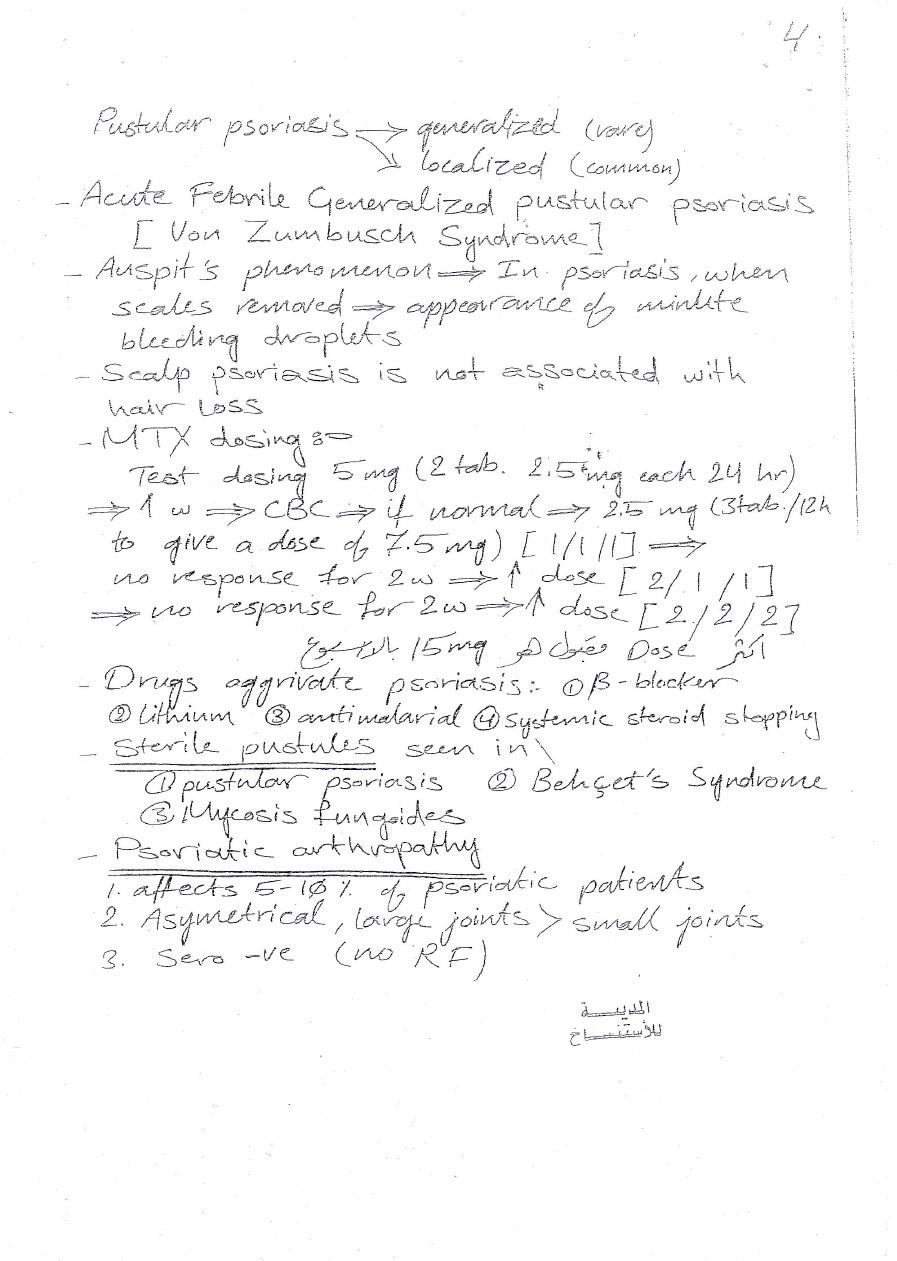 4.
Pustular psoriasis → generalized (rare)
↘ localized (common)
- Acute Febrile Generalized pustular psoriasis
[ Von Zumbusch Syndrome ]
- Auspit's phenomenon ⇒ In psoriasis, when
scales removed ⇒ appearance of minute
bleeding droplets
- Scalp psoriasis is not associated with
hair loss
- MTX dosing :-
Test dosing 5 mg (2 tab. 2.5 mg each 24 hr)
⇒ 1 w ⇒ CBC ⇒ if normal ⇒ 2.5 mg (3tab./12h
to give a dose of 7.5 mg) [ 1/1/1] ⇒
no response for 2w ⇒ ↑ dose [ 2/1/1]
⇒ no response for 2w ⇒ ↑ dose [ 2/2/2]
أكثر Dose هو 15mg
- Drugs aggrivate psoriasis:- ① β-blocker
② lithium ③ antimalarial ④ systemic steroid stopping
- Sterile pustules seen in\
① pustular psoriasis ② Behçet's Syndrome
③ Mycosis fungoides
- Psoriatic arthropathy
1. affects 5-10 % of psoriatic patients
2. Asymetrical, large joints > small joints
3. Sero -ve (no RF)
المدينة
للأستنساخ